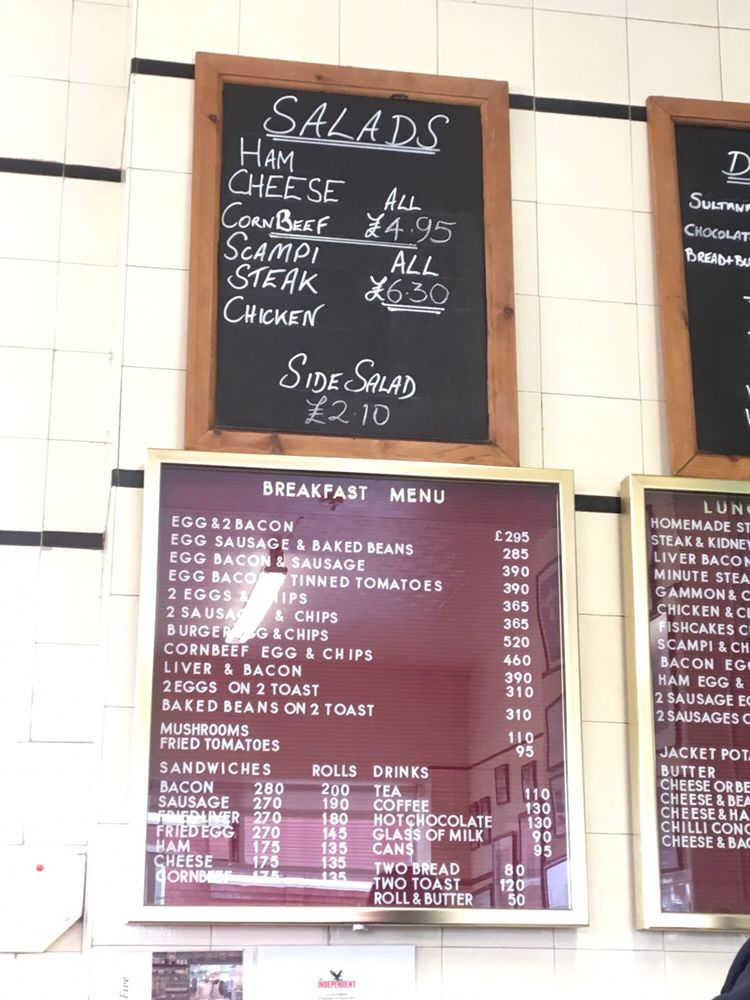 SALADS
HAM
CHEESE ALL
CORNBEEF £4.95
SCAMPI ALL
STEAK £6.30
CHICKEN
SIDE SALAD
£2.10
BREAKFAST MENU
EGG & 2 BACON £295
EGG SAUSAGE & BAKED BEANS 285
EGG BACON & SAUSAGE 390
EGG BACON TINNED TOMATOES 390
2 EGGS & CHIPS 365
2 SAUSAGE & CHIPS 365
BURGER EGG & CHIPS 520
CORNBEEF EGG & CHIPS 460
LIVER & BACON 390
2 EGGS ON 2 TOAST 310
BAKED BEANS ON 2 TOAST 310
MUSHROOMS 110
FRIED TOMATOES 95
SANDWICHES ROLLS DRINKS
BACON 280 200 TEA 110
SAUSAGE 270 190 COFFEE 130
FRIED LIVER 270 180 HOT CHOCOLATE 130
FRIED EGG 270 145 GLASS OF MILK 90
HAM 175 135 CANS 95
CHEESE 175 135 TWO BREAD 80
CORNBEEF 175 135 TWO TOAST 120
ROLL & BUTTER 50
D
SULTANA
CHOCOLAT
BREAD+BU
LUNC
HOMEMADE ST
STEAK & KIDNEY
LIVER BACON
MINUTE STEA
GAMMON & C
CHICKEN & CH
FISHCAKES C
SCAMPI & CH
BACON EGG
HAM EGG &
2 SAUSAGE EG
2 SAUSAGES C
JACKET POTA
BUTTER
CHEESE OR BE
CHEESE & BEA
CHEESE & HA
CHILLI CONC
CHEESE & BAC
Five
INDEPENDENT